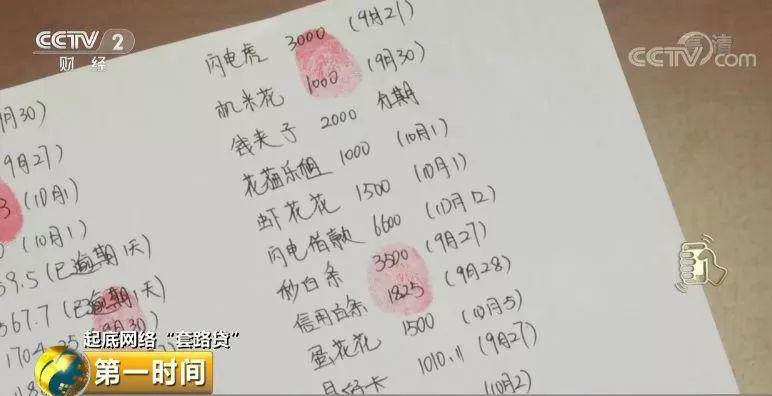 CCTV 2
财经
高清
CCTV.com
闪电虎 3000 (9月27)
机米花 1000 (9月30)
钱夹子 2000 分期
花猫乐租 1000 (10月1)
虾花花 1500 (10月1)
闪电借款 6600 (10月12)
秒白条 3500 (9月27)
信用白条 1825 (9月28)
蛋花花 1500 (10月5)
1010.11 (9月27)
(10月2)
月30)
9月27)
(10月1
(10月1)
59.5 (已逾期1天)
567.7 (已逾期1天)
9月30)
起底网络“套路贷”
第一时间